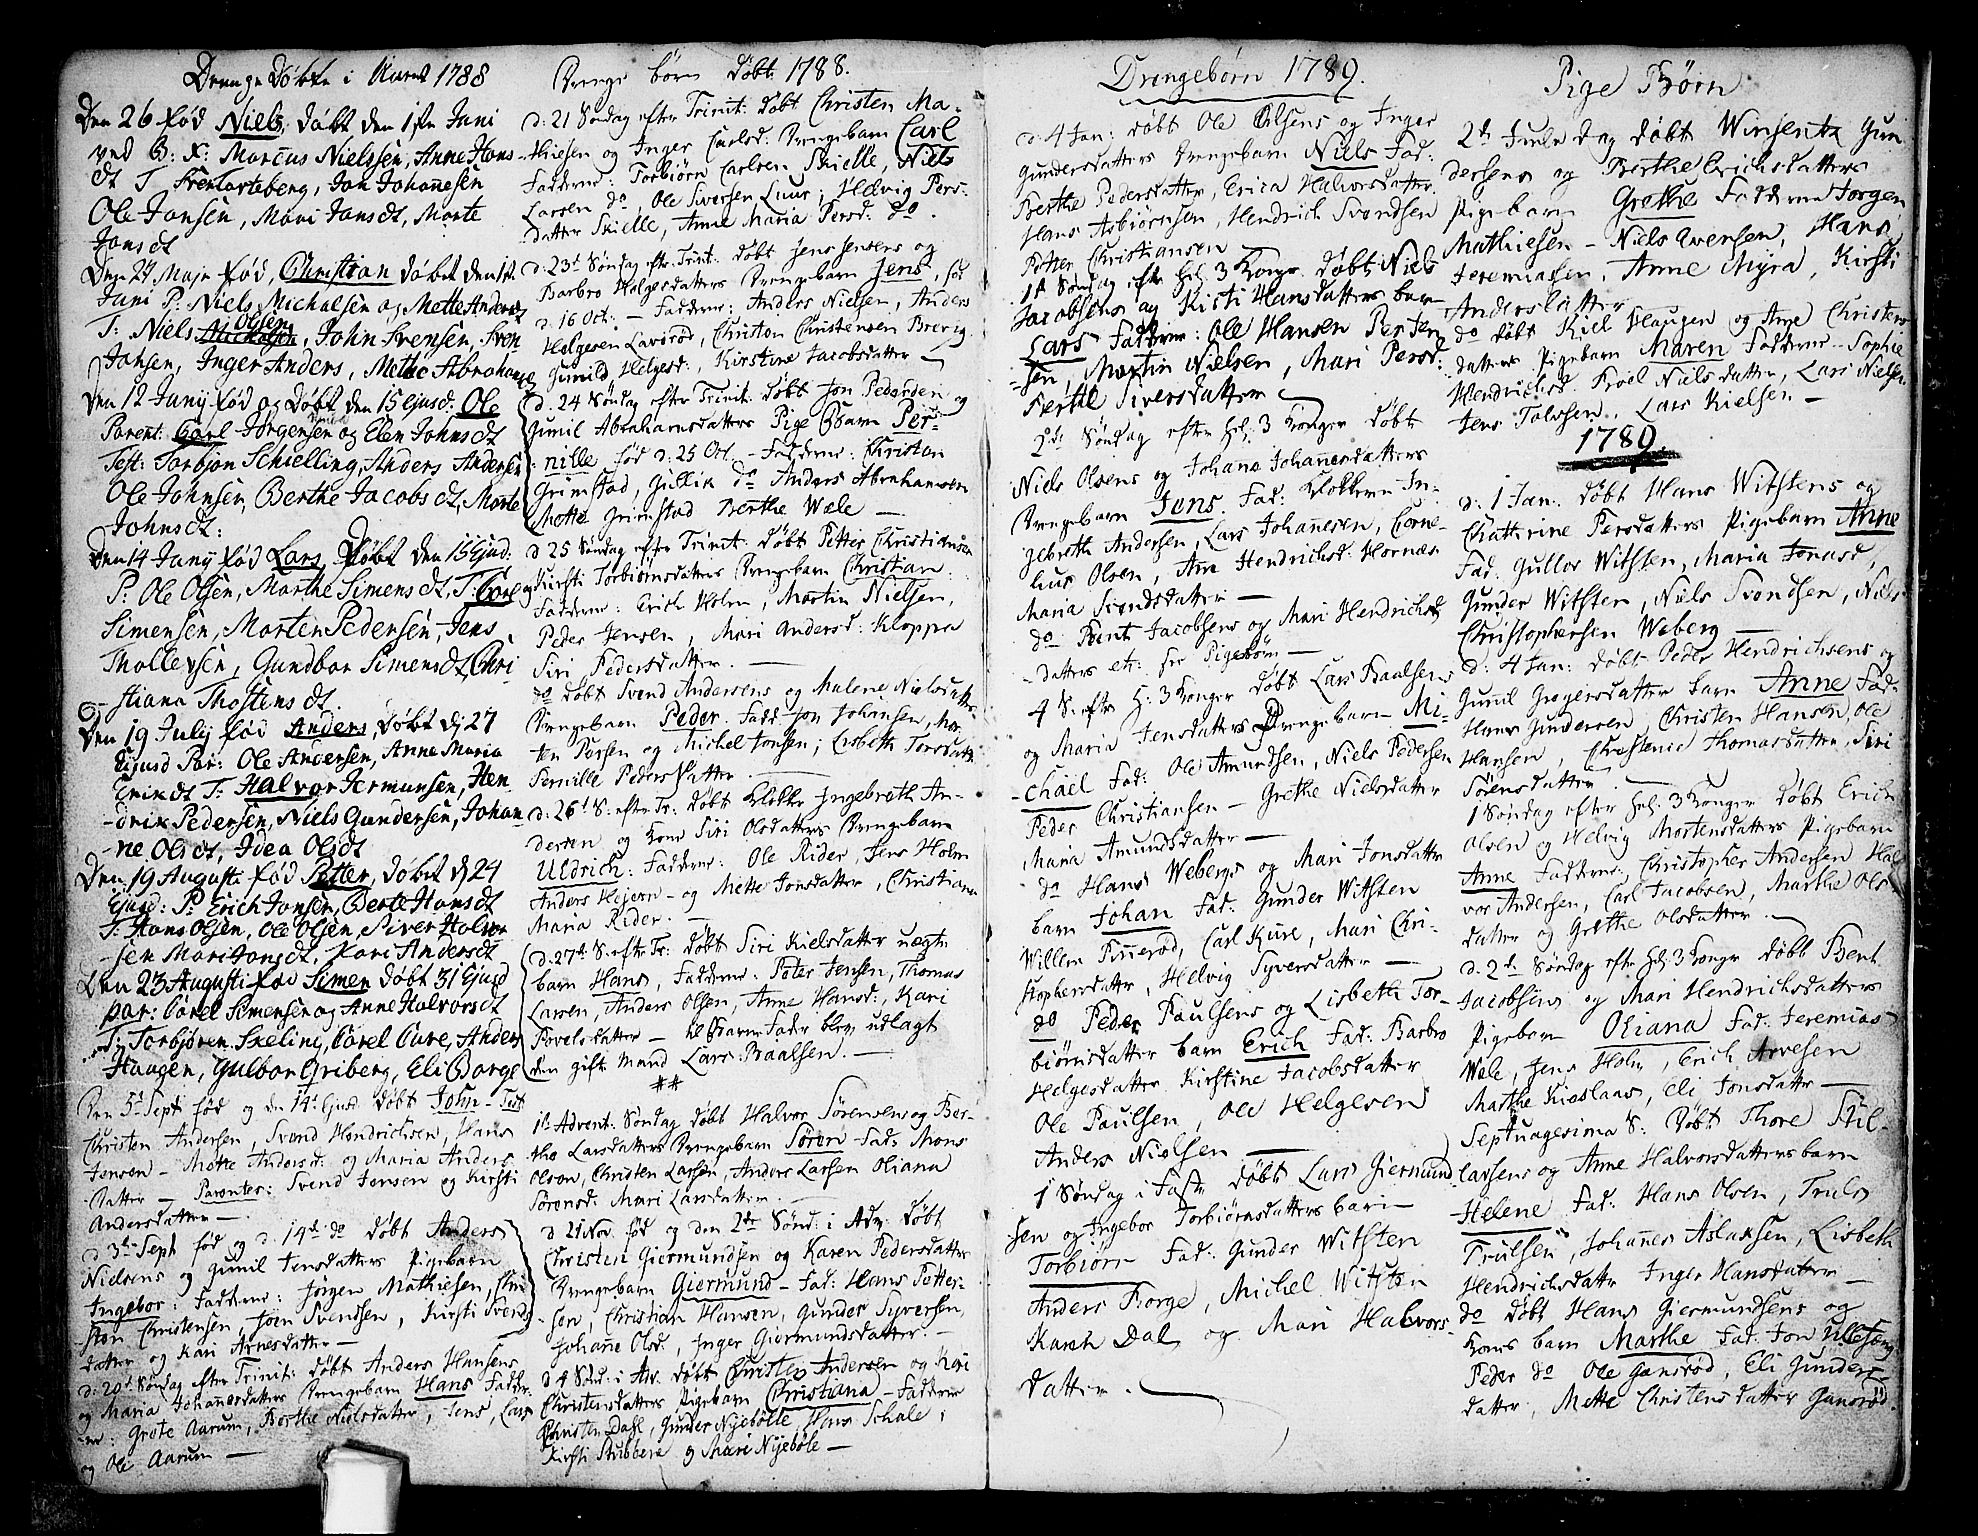 Drenge Døbte i Aaret 1788
Den 26 fød Niels, døbt den 1ste Juni
ved B: N: Marcus Nielssen, Anne Hans
dt T Jon Johanesen
Ole Jansen, Mari Jansdt, Marte
Jansdt
Den 27 Maji fød, Christian døbt den 1st
Juni P: Niels Michalsen og Mette Andersdt
T: Niels Olsen, John Svensen, Sven
Johsen, Inger Anders, Methe Abraham
Den 12 Junij fød og døbt den 15 ejusd: Ole
Parent: Carl Jørgensen og Elen Johnsdt
Test: Torbjøn Schielling, Anders Andersen
Ole Johnsen, Berthe Jacobsdt, Morte
Johnsdt:
Den 14 Junij fød Lars, Døbt den 15 Ejusd:
P: Ole Olsen, Marthe Simensdt, T: Carl
Simensen, Morten Pedersen, Jens
Thollevsen, Gundbor Simensdt, Chri-
stiana Thostensdt.
Den 19 Julij fød Anders, døbt dj 27
Ejusd Par: Ole Andersen, Anne Maria
Erikdt T: Halvor Armunsen, Hen
-drik Pedersen, Niels Gundersen, Johan
-ne Olsdt, Idea Olsdt
Den 19 Augusti fød Petter, døbt dj 24
Ejusd: P: Erich Jonsen, Berte Hansdt
T: Hans Olsen, Ole Olsen, Siver Halvor
-sen Mari Jansdt, Kari Andersdt
Den 23 Augusti fød Simen døbt 31 Ejusd
par: Carel Simensen og Anne Halvorsdt
T: Torbjøren Skeling, Carel Cure, Anders
Haugen, Gulbor Griberg, Eli Borge
Den 5t Sept fød og den 14t Ejusd døbt John - Test
Christen Andersen, Svend Hendrichsen, Hans
Jensen - Mette Andersd: og Maria Anders
datter - Parenter: Svend Jensen og Kirsti
Andersdatter -
d 3t Sept fød og d. 14de do døbt Anders
Nielsens og Gumil Jensdatters Pigebarn
Ingebor: Fadderne: Jørgen Mathiesen, Chri
-sten Christensen, Joen Svendsen, Kirsti Svends
datter og Kari Arnesdatter -
d: 20t Søndag efter Trinit: døbt Anders Hansens
og Maria Johannesdatters Drengebarn Hans Fadde
rne: Grete Aarum, Berthe Nielsdatter, Jens, Lars
og Ole Aarum -
Drenge børn døbt 1788.
d: 21 Søndag efter Trinit: døbt Christen Ma-
thiesen og Inger Carlsd: Drengebarn Carl
Fadderne: Torbiørn Carlsen Skielle, Niels
Larsen do, Ole Siversen Kuur, Helvig Pers-
datter Skielle, Anne Maria Persd: do.
d: 23d Søndag eftr. Trinit: døbt Jens Jensens og
Barbro Helgesdatters Drengebarn Jens, fød
d: 16 Oct: - Fadderne: Anders Nielsen, Anders
Helgesen Lavørød, Christen Christensen Brevig
Gunild Helgesd:, Kirstine Jacobsdatter -
d. 24 Søndag efter Trinit: døbt Jon Pedersen og
Gumil Abrahamsdatters Pige Barn Per-
nille fød d: 25 Oct. - Fadderne: Christen
Grimstad, Gullik do Anders Abrahamsen
Mette Grimstad Berthe Wæle -
d 25 Søndag efter Trinit: døbt Petter Christiansen
og Kirsti Torbiørnsdatters Drengebarn Christian:
Fadderne: Erich Holm, Martin Nielsen,
Peder Jensen, Mari Andersd: Kloppe
Siri Pedersdatter. -
do døbt Svend Andersens og Malene Nielsdatters
Drengebarn Peder. Fadd: Jon Johansen, Mor-
ten Persen og Michel Jonsen; Lisbeth Torsdatter
Pernille Pedersdatter -
d: 26t S: efter Tr: døbt Klokker Ingebreth An-
dersen og Kone Siri Olsdatters Drengebarn
Uldrich: Fadderne: Ole Rider, Jens Holm
Anders Hejern - og Mette Jonsdatter, Christiane
Maria Rider. -
d: 27de S: eftr Tr: døbt Siri Kielsdatter uægte
barn Hans, Fadderne: Peter Jensen, Thomas
Larsen, Anders Olsen, Anne Hansd:, Kari
Povelsdatter - til Barne Fadr blev udlagt
den gifte Mand Lars Baalsen. -
1st Advent: Søndag døbt Halvor Sørensens og Ber-
the Larsdatters Drengebarn Søren - Fad: Mons
Olsen, Christen Larsen, Anders Larsen Oliana
Sørensd: Mari Larsdatter. -
d 21 Nov. fød og den 2de Sønd: i Adv. døbt
Christen Giermundsen og Karen Pedersdatter
Drengebarn Giermund - Fad: Hans Petter-
sen, Christian Hansen, Gunder Syversen,
Johane Olsd:, Inger Giermundsdatter. -
d 4 Sønd: i Adv. døbt Christen Andersen og Kari
Christensdatters Pigebarn Christiana - Fadderne
Christen Dahl, Gunder Nyebølle, Hans Schale,
Kirsti Stubberø og Mari Nyebøle -
Drengebørn 1789.
d: 4 Jan: døbt Ole Olsens og Inger
Gundersdatters Drengebarn Niels Fad:
Berthe Pedersdatter, Erica Halvorsdatter
Hans Asbiørnsen, Hendrich Svendsen
Petter Christiansen
1st Søndag eftr Hel: 3 Konger døbt Niels
Jacobsens og Kisti Hansdatters barn
Lars Fadderne: Ole Hansen Per Jen
-sen, Martin Nielsen, Mari Persd:
Berthe Siversdatter -
2de Søndag efter Hel: 3 Konger døbt
Niels Olsens og Johane Johanesdatters
Drengebarn Jens. Fad: Klokkeren In-
gebreth Andersen, Lars Johanesen, Corne-
lius Olsen, Ane Hendrichsd: Hornæs
Maria Svendsdatter -
do Bent Jacobsens og Mari Hendrichs
-datters etc: see Pigebørn -
4 S. eftr H: 3 Konger døbt Lars Baalsens
og Maria Jensdatters Drengebarn Mi-
-chael Fad: Ole Amundsen, Niels Pedersen
Peder Christiansen - Grethe Nielsdatter
Maria Amundsdatter -
do Hans Webergs og Mari Jonsdatter
barn Johan Fad: Gunder Witsten
Willem Finnerød, Carl Kure, Mari Chri-
stophersdatter, Helvig Syversdatter -
do Peder Paulsens og Lisbeth Tor-
biørnsdatter barn Erich Fad: Barbro
Helgesdatter Kirstine Jacobsdatter
Ole Paulsen, Ole Helgesen
Anders Nielsen -
1 Søndag i Faste døbt Lars Giermund
sen og Ingebor Torbiørnsdatters barn
Torbiørn Fad: Gunder Witsten
Anders Borge, Michel Witsten
Karen Dal, og Mari Halvors-
datter. -
Pige Børn
2de Juule dag døbt Winsentz Gun
dersens og Berthe Erichsdatters
Pigebarn Grethe Fadderne Jørgen
Mathiesen - Niels Aversen, Hans
Jeremiasen, Anne Myra, Kirsti
Andersdatter
do døbt Kiel Haugen og Ane Christens
datters Pigebarn Maren Fadderne - Sophie
Hendrichsd. Kroel Nielsdatter, Lars Nielsen
Jens Tolvsen, Lars Kielsen -
1789.
d: 1 Jan. døbt Hans Witstens og
Chathrine Persdatters Pigebarn Anne
Fad: Gullov Witsten, Maria Jonasd,
Gunder Witsten, Niels Svendsen, Niels
Christophersen Weberg -
d: 4 Jan: døbt Peder Hendrichsens og
Gunil Gregersdatter barn Anne Fad:
Hans Gundersen, Christen Hansen, Ole
Hansen, Christenie Thomasdatter, Siri
Sørensdatter. -
1 Søndag efter Hel: 3 Konger døbt Erich
Olsen og Helvig Mortensdatters Pigebarn
Anne Fadderne: Christopher Andersen Hal
vor Andersen, Carl Jacobsen, Marthe Ols
datter og Grethe Olsdatter. -
d. 2de Søndag eftr Hel: 3 Konger døbt Bent
Jacobsens og Mari Hendrichsdatters
Pigebarn Oliana Fad: Jeremias
Wæle, Jens Holm, Erich Arvesen
Marthe Kioslaas, Eli Jonsdatter -
Septuagesima S: døbt Thore Stil-
larsens og Anne Halvorsdatters barn
Helene Fad: Hans Olsen, Truls
Trulsen, Johannes Aslaksen, Lisbeth
Hendrichsdattr Inger Hansdatter -
do døbt Hans Giermundsens og
Kones barn Marthe Fad: Jon Ullesong
Peder do Ole Gansrød, Eli Gunders
datter, Mette Christensdatter Gansrød.
11